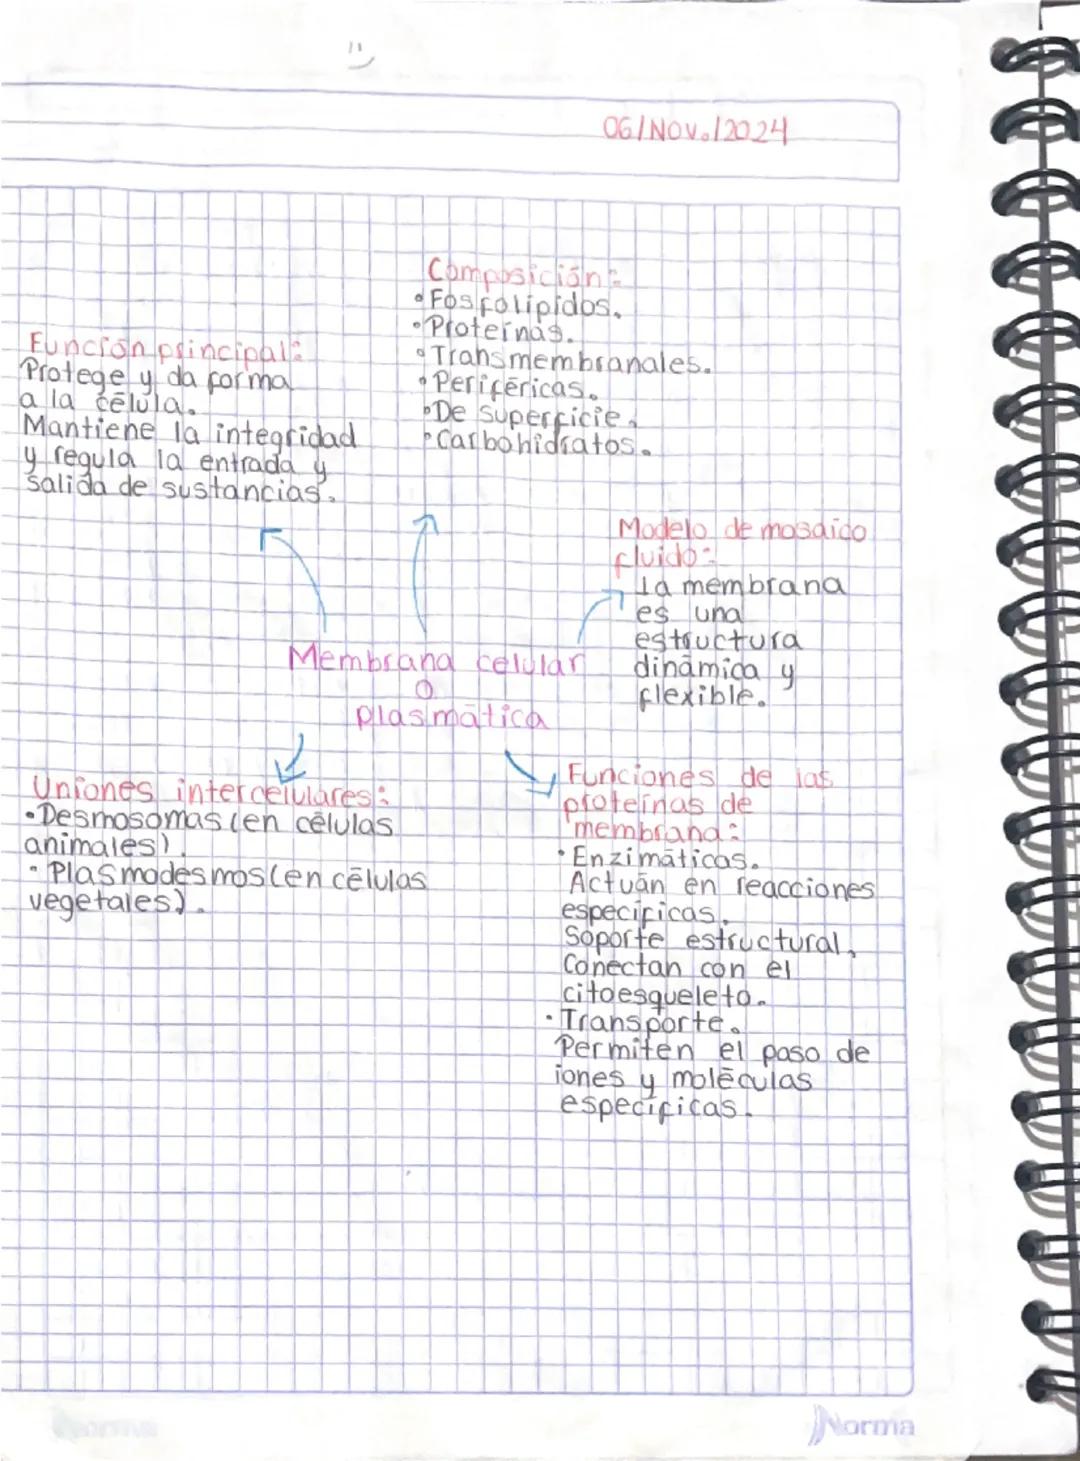 06/Nov./2024
Composición:
• Fosfolípidos.
• Proteínas.
• Transmembranales.
• Periféricas.
• De superficie.
• Carbohidratos.
Función principal:
Protege y da forma
a la célula.
Mantiene la integridad
y regula la entrada y
salida de sustancias.
Modelo de mosaico
fluido:
La membrana
es una
estructura
dinámica y
flexible.
Membrana celular
o
plasmática
Uniones intercelulares:
• Desmosomas (en células
animales).
• Plasmodesmos (en células
vegetales).
Funciones de las
proteínas de
membrana:
• Enzimáticas.
Actuán en reacciones
especificas.
Soporte estructural,
Conectan con el
citoesqueleto.
• Transporte.
Permiten el paso de
iones y moléculas
específicas.
Norma